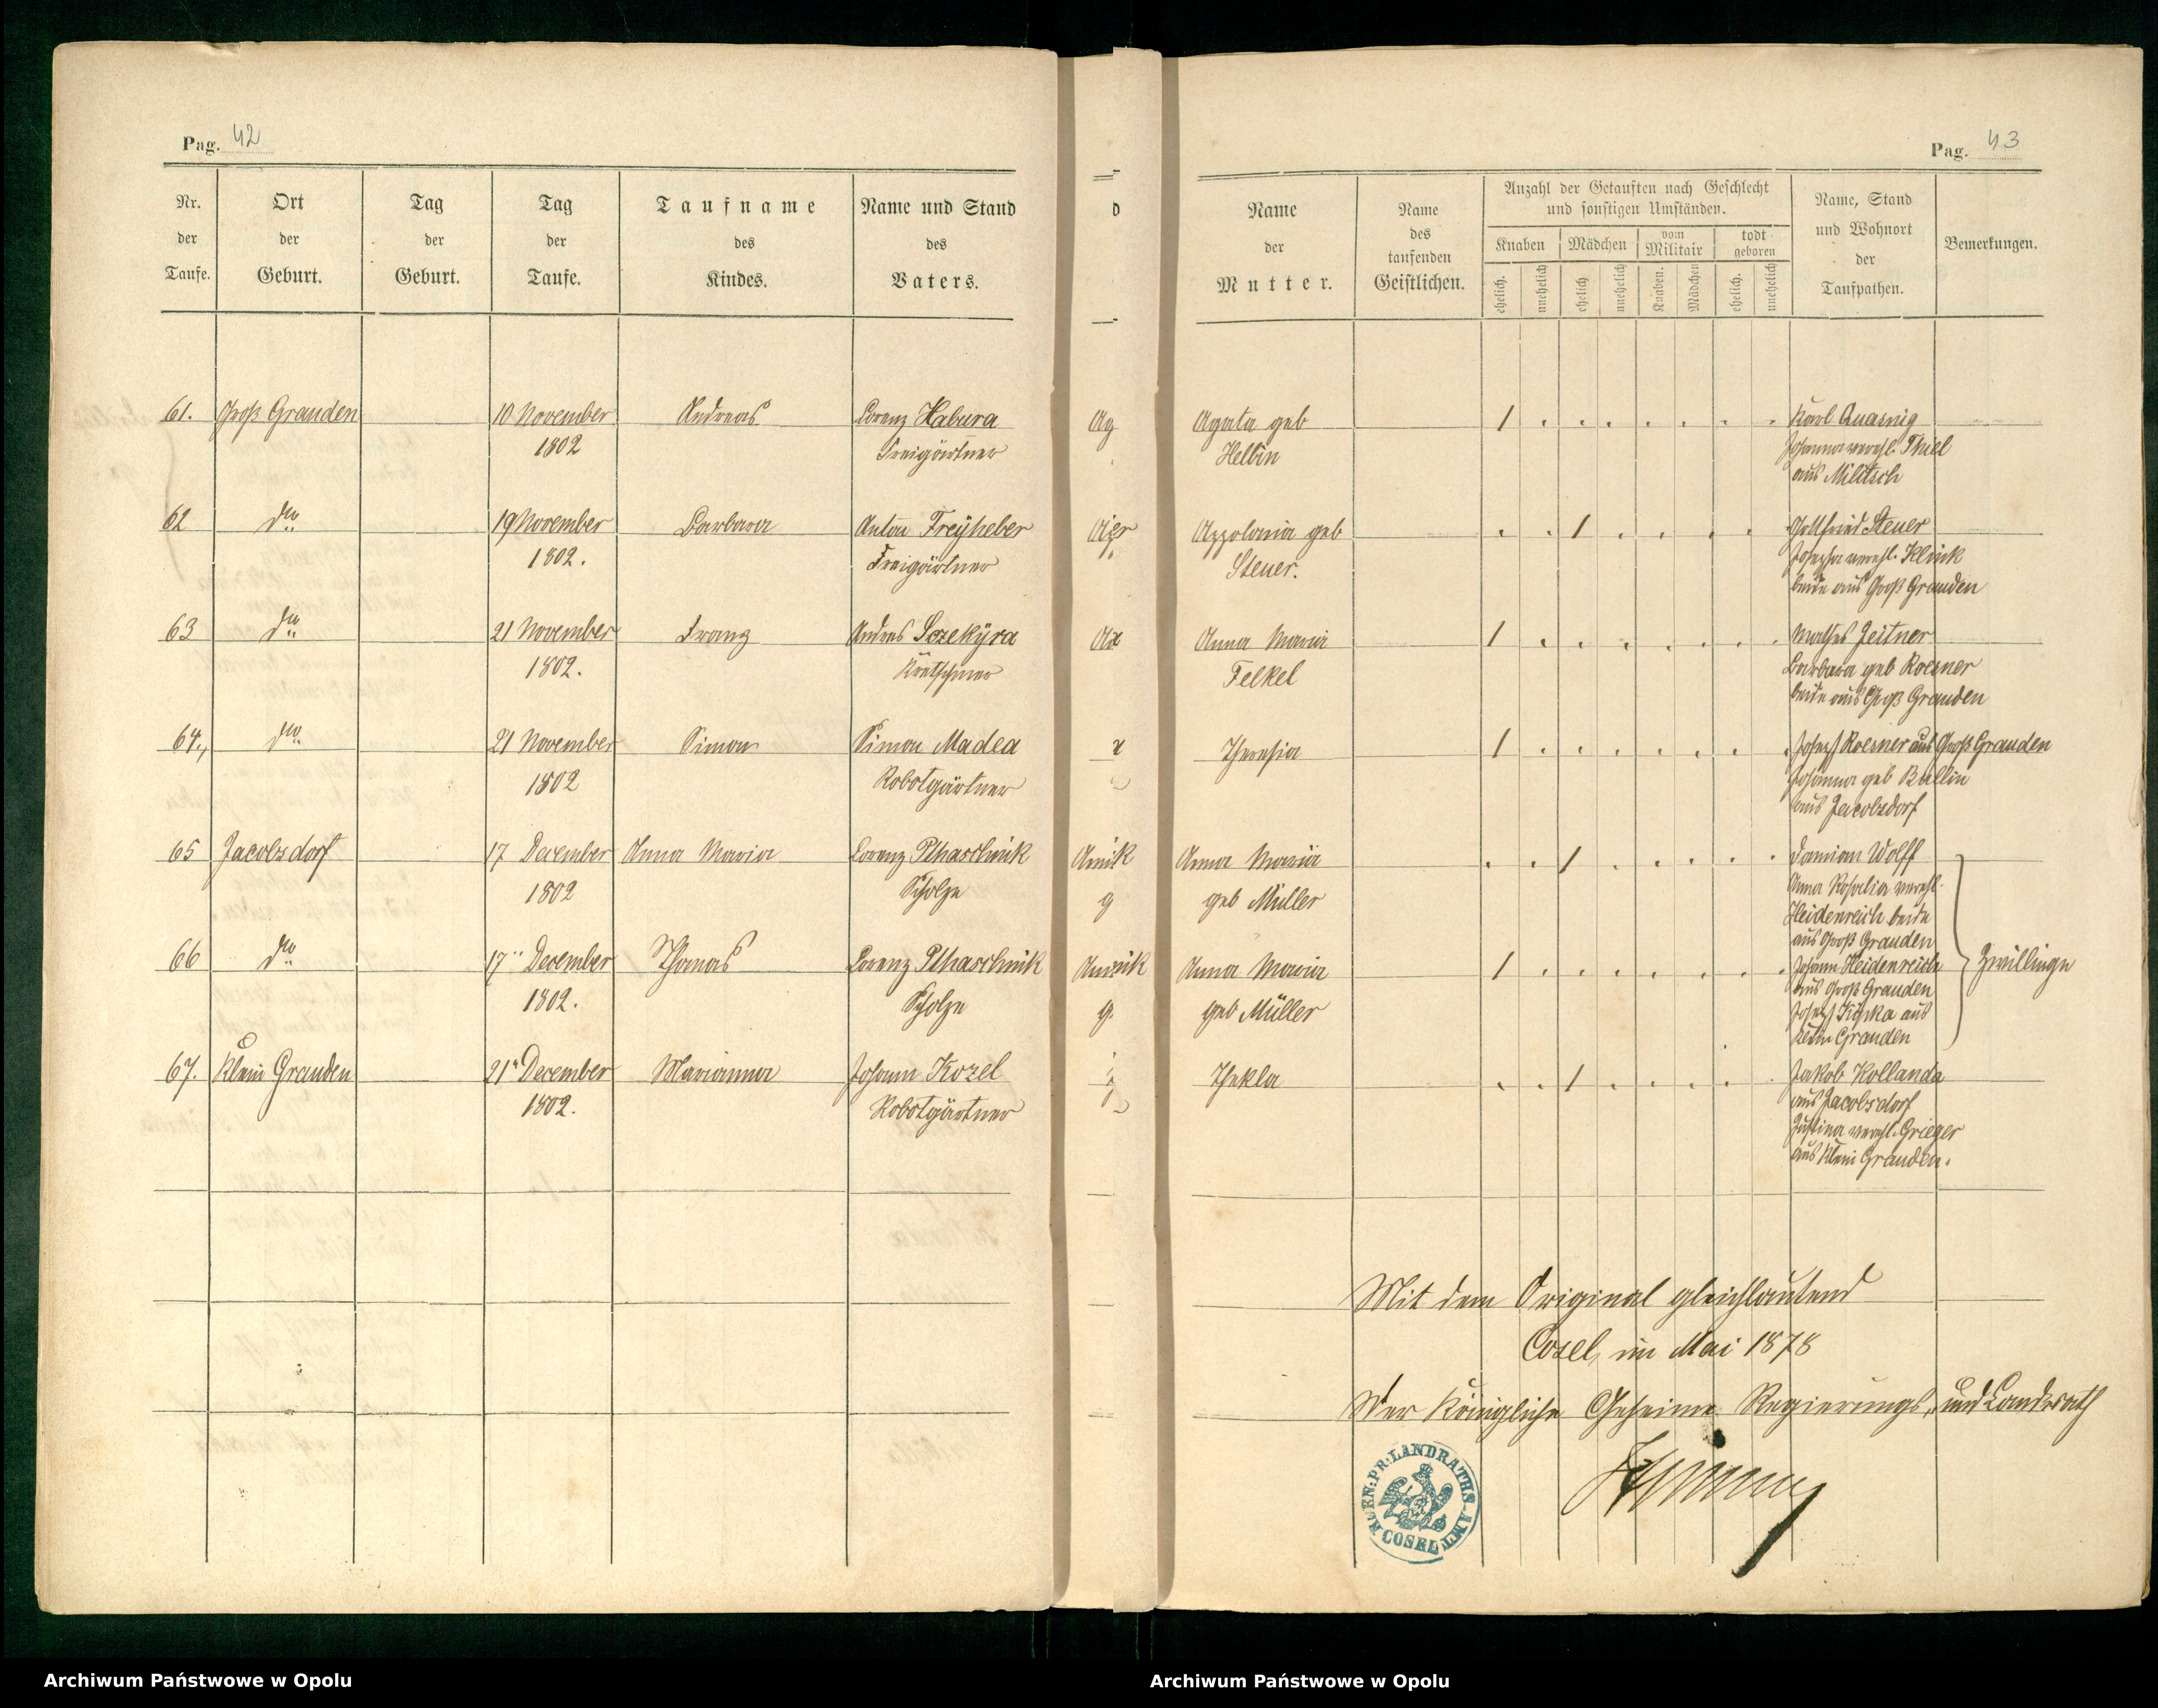 Pag. 42
Nr. der Taufe.
Ort der Geburt.
Tag der Geburt.
Tag der Taufe.
Taufname des Kindes.
Name und Stand des Vaters.
61. Groß Grauden 10 November Andreas Lorenz Habura
1802 Freigärtner
62 do 19 November Barbara Anton Freyheber
1802. Freigärtner
63 do 21 November Franz Andreas Sczekÿra
1802. Kretschmer
64., do 21 November Simon Simon Madea
1802 Robotgärtner
65 Jacobsdorf 17 December Anna Maria Lorenz Pthaschnik
1802 Scholze
66 do 17 December Thomas Lorenz Pthaschnik
1802. Scholze
67. Klein Grauden 21 December Marianna Johann Kozel
1802. Robotgärtner
Pag. 43
Name der Mutter.
Name des taufenden Geistlichen.
Anzahl der Getauften nach Geschlecht
und sonstigen Umständen.
Knaben Mädchen vom Militair todt geboren
ehelich. unehelich ehelich unehelich Knaben. Mädchen ehelich. unehelich
Name, Stand und Wohnort der Taufpathen.
Bemerkungen.
Agata geb 1 Karl Quasnig
Helbin Johanna verehl. Thiel
aus Militsch
Appolonia geb 1 Gottfried Steuer
Steuer. Josepha verehl. Klink
beide aus Groß Grauden
Anna Maria 1 Mathes Zeitner
Felkel Barbara geb Roesner
beide aus Groß Grauden
Theresia 1 Joseph Roesner aus Groß Grauden
Johanna geb Bullin
aus Jacobsdorf
Anna Maria 1 Damian Wolff
geb Müller Anna Rosalia verehl.
Heidenreich beide
aus Groß Grauden
Anna Maria 1 Johann Heidenreich Zwillinge
geb Müller aus Groß Grauden
Joseph Kopka aus
Klein Grauden
Thekla 1 Jakob Kollanda
aus Jacobsdorf
Justina verehl. Grieger
aus Klein Grauden.
Mit dem Original gleichlautend
Cosel, im Mai 1878
Der Königliche Geheime Regierungs- und Landrath
KOEN: PR: LANDRATHS-AMT COSEL
Archiwum Państwowe w Opolu
Archiwum Państwowe w Opolu